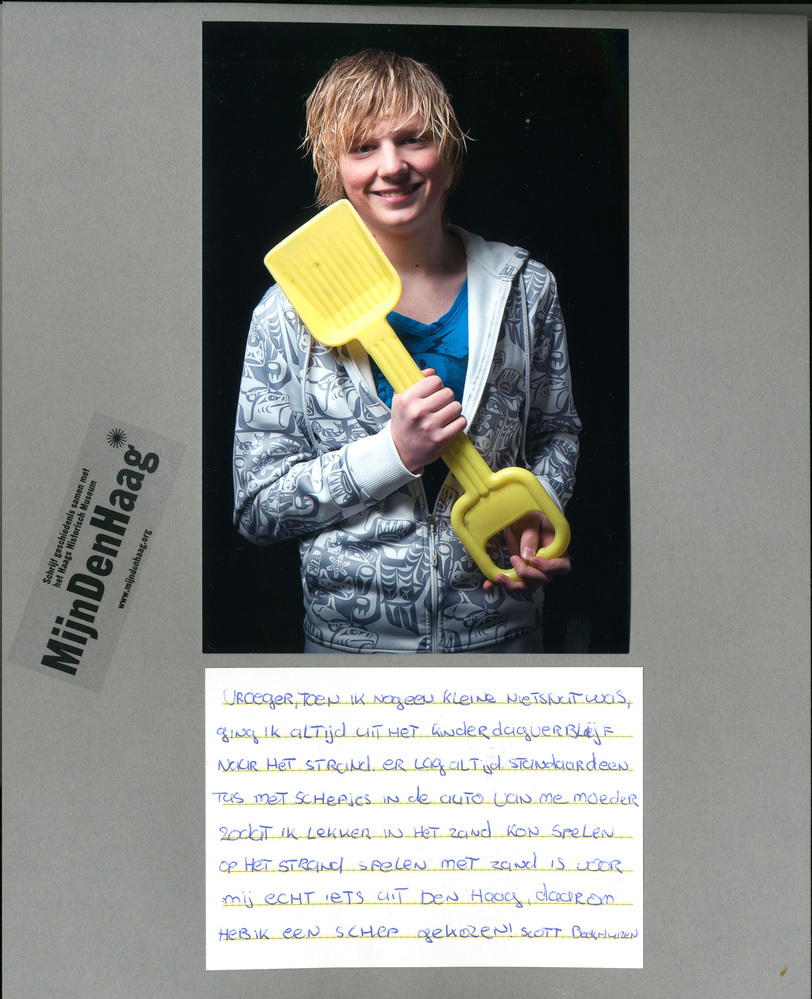 Schrijf geschiedenis samen met
het Haags Historisch Museum
MijnDenHaag
www.mijndenhaag.org
VROEGER, TOEN IK NOG EEN KLEINE NIETSNUT WAS,
GING IK ALTIJD UIT HET KINDERDAGVERBLIJF
NAAR HET STRAND. ER LAG ALTIJD STANDAARD EEN
TAS MET SCHEPJES IN DE AUTO VAN ME MOEDER
ZODAT IK LEKKER IN HET ZAND KON SPELEN
OP HET STRAND SPELEN MET ZAND IS VOOR
MIJ ECHT IETS UIT DEN HAAG, DAAROM
HEB IK EEN SCHEP GEKOZEN! SCOTT BEEKHUIZEN